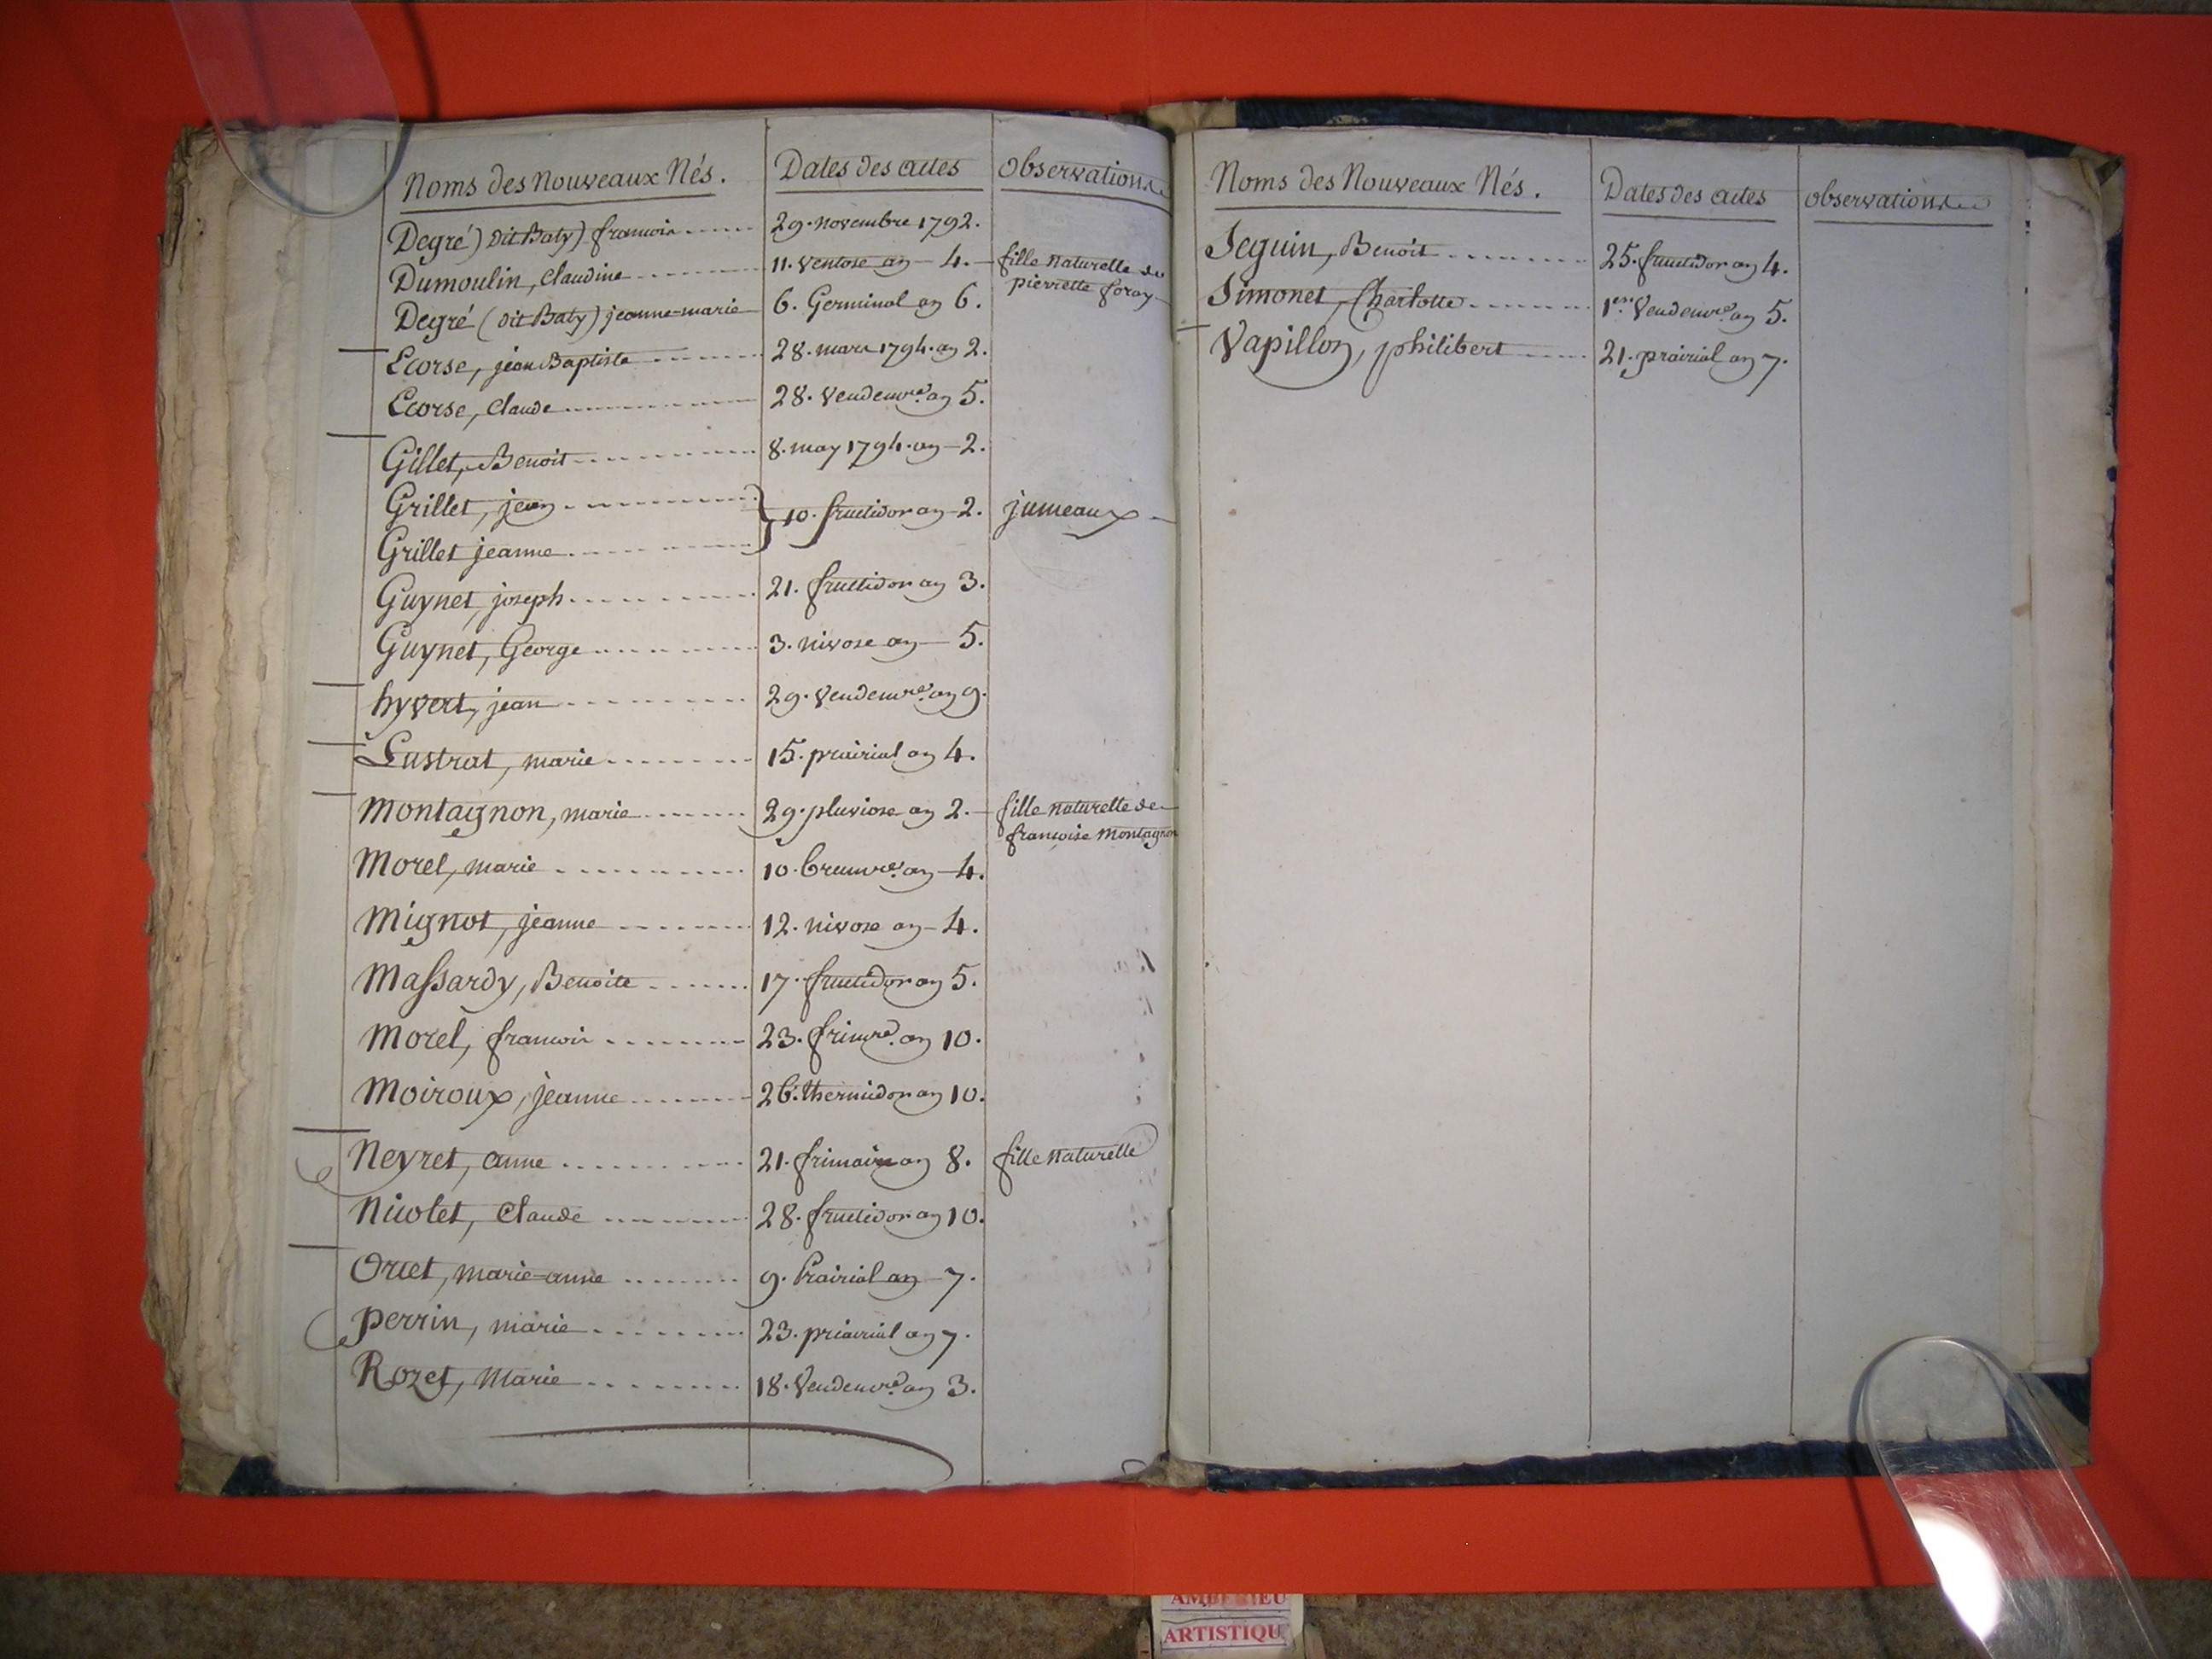 Noms des Nouveaux Nés. Dates des actes Observations
Degré) dit Baty) francois 29. novembre 1792.
Dumoulin, Claudine 11. Ventose an 4. fille naturelle de
pierrette foray
Degré (dit Baty) jeanne=marie 6. Germinal an 6.
Ecorse, jean Baptiste 28. mars 1794. an 2.
Ecorse, Claude 28. Vendemre. an 5.
Gillet, Benoit 8. may 1794. an 2.
Grillet, jean
10. fructidor an 2. jumeaux
Grillet jeanne
Guynet, joseph 21. fructidor an 3.
Guynet, George 3. nivose an 5.
hyvert, jean 29. Vendemre. an 9.
Lustrat, marie 15. prairial an 4.
Montagnon, marie 29. pluviose an 2. fille naturelle de
françoise Montagnon
Morel, marie 10. brumre. an 4.
Mignot, jeanne 12. nivose an 4.
Massardy, Benoite 17. fructidor an 5.
Morel, francois 23. frimre. an 10.
Moiroux, jeanne 26. thermidor an 10.
Neyret, anne 21. frimaire an 8. fille naturelle
Nicolet, Claude 28. fructidor an 10.
Orcet, marie=anne 9. Prairial an 7.
perrin, marie 23. priairial an 7.
Rozet, Marie 18. Vendemre. an 3.
Noms des Nouveaux Nés. Dates des actes observations
Seguin, Benoit 25. fructidor an 4.
Simonet, Charlotte 1er. Vendemre. an 5.
Vapillon, philibert 21. prairial an 7.
ARTISTIQU